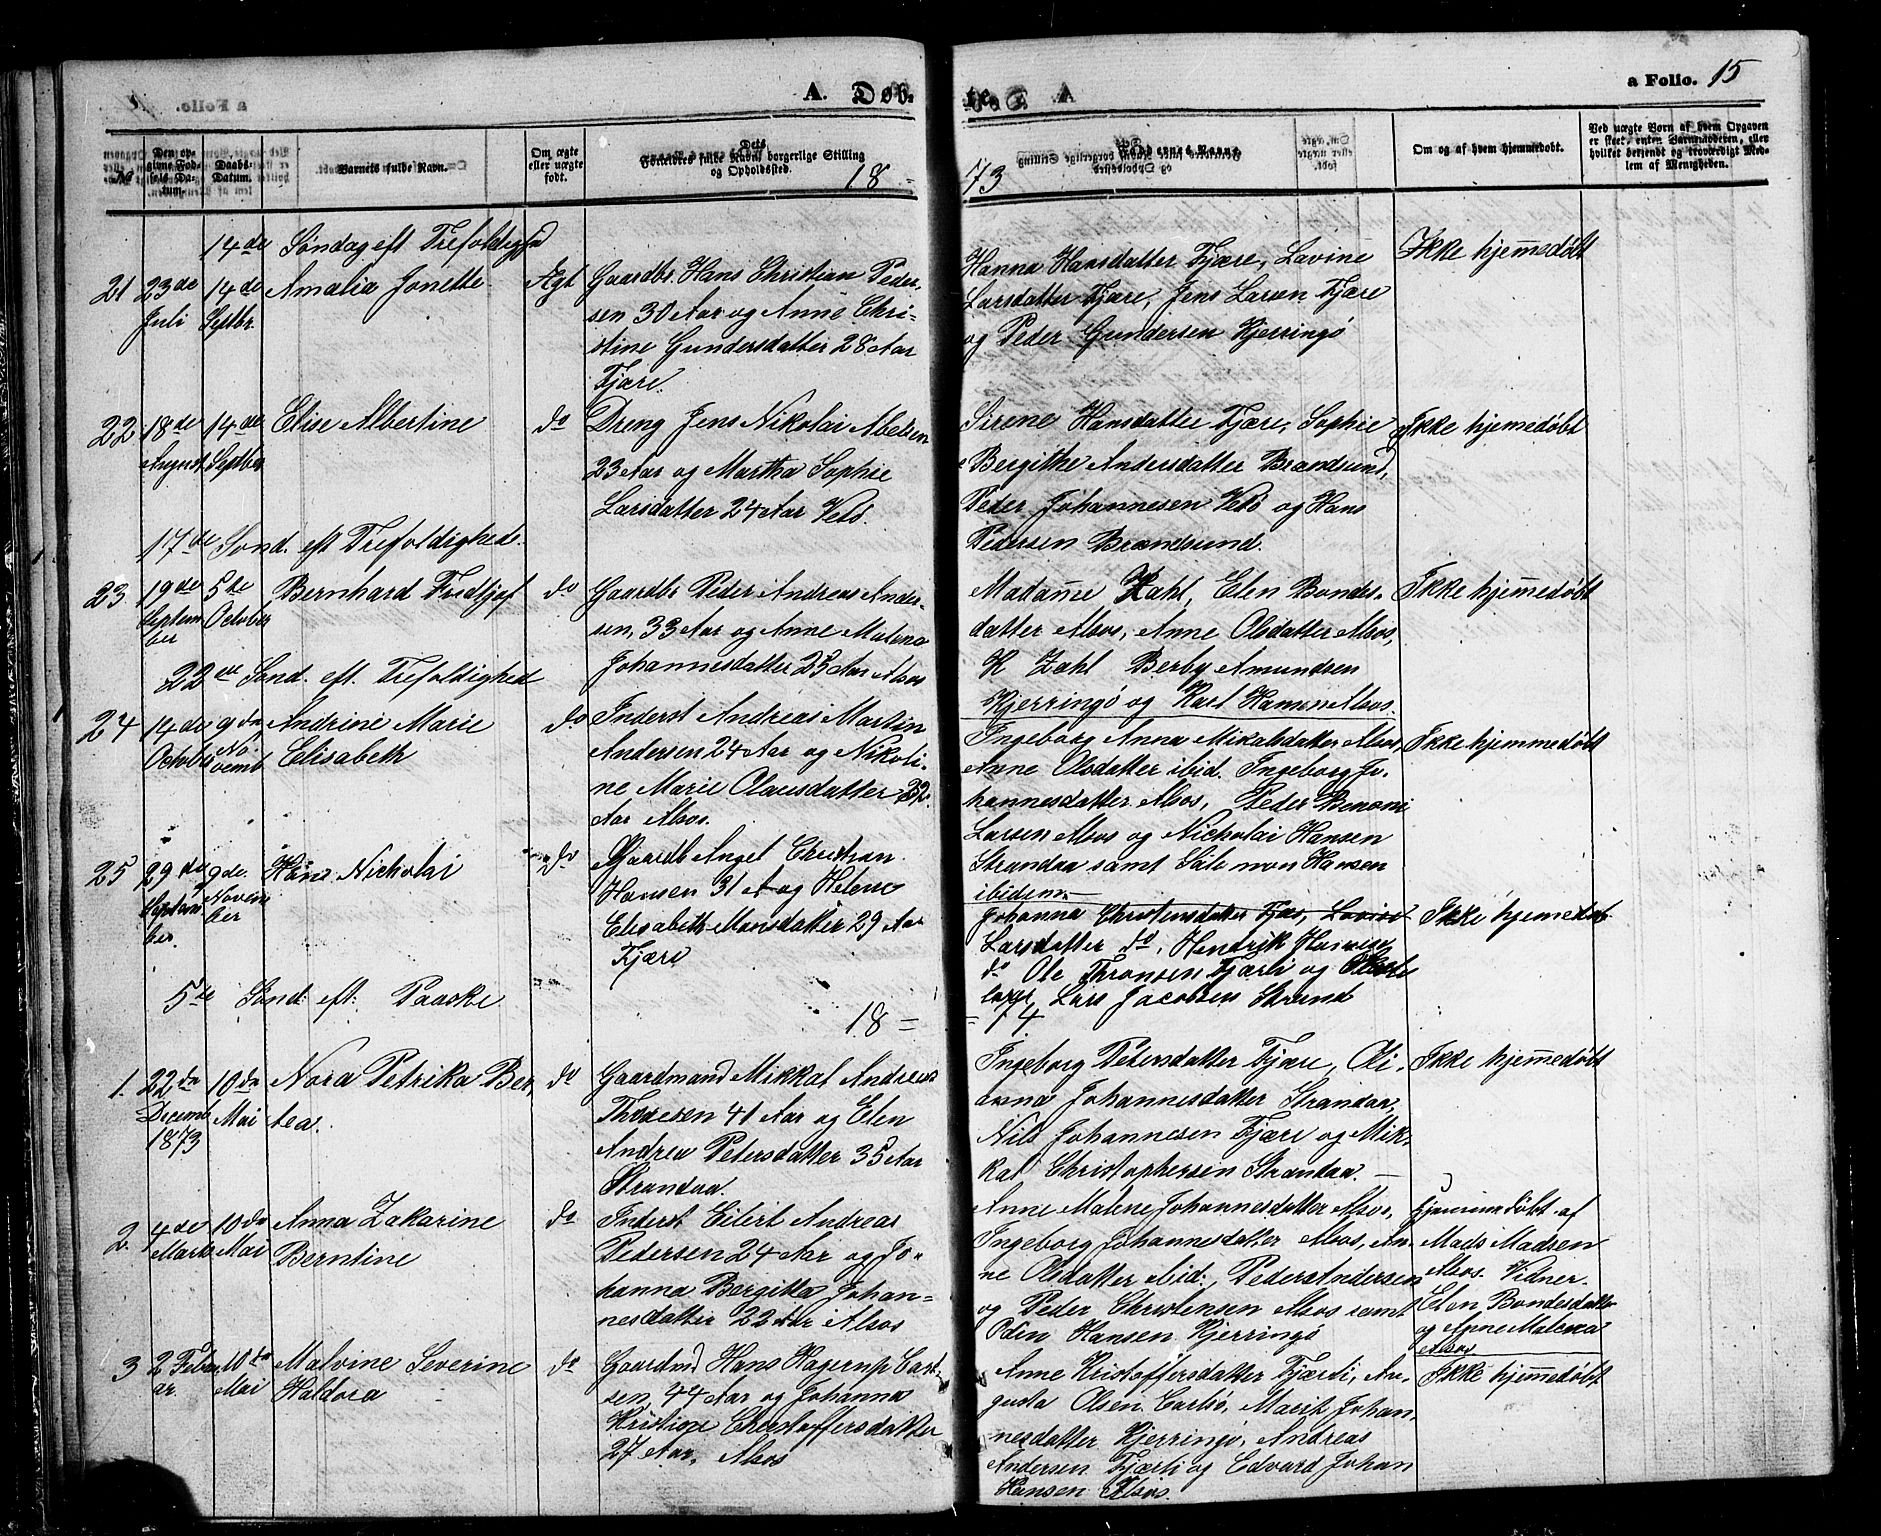 A. Døb-
te. A
a Folio. 15
No
Den op-
givne Fød-
sels Da-
tum.
Daabs-
Datum.
Barnets fulde Navn.
Om ægte
eller uægte
født.
Forældres fulde Navn, borgerlige Stilling
og Opholdssted.
Om og af hvem hjemmedøbt.
Ved uægte Børn af hvem Opgaven
er skeet, enten Barnemoderen, eller
hvilket bekjendt og troværdigt Med-
lem af Menigheden.
18 =
73
14de Søndag eft Trefoldighd
21 23de Juli
14de Septbr.
Amalia Jonette
Ægt
Gaardbr. Hans Christian Peder-
sen 30 Aar og Anne Chri-
stine Gundersdatter 28 Aar
Fjære.
Hanna Hansdatter Fjære, Lavine
Larsdatter Fjære, Jens Larsen Fjære
og Peder Gundersen Kjerringø
Ikke hjemmedøbt
22 18de August
14de Septbr
Elise Albertine
do
Dreng Jens Nikolai Abelsen
23 Aar og Martha Sophie
Larsdatter 24 Aar Vetø.
Sirene Hansdatter Fjære, Sophie
Bergithe Andersdatter Brændsund,
Peder Johannesen Vetø og Hans
Pedersen Brændsund.
Ikke hjemedøbt
17de Sønd. eft Trefoldighed.
23 19de Septem
ber
5te October
Bernhard Fredtjof
do
Gaardbr Peder Andreas Ander-
sen, 33 Aar og Anne Malena
Johannesdatter 25 Aar Alsos
Madame Zahl, Elen Bondes-
datter Alsos, Anne Olsdatter Alsos,
K Zahl Berby Amundsen
Kjerringø og Karl Hansen Alsos.
Ikke hjemmedøbt
22de Sønd. eft. Trefoldighed
24 14de Octob
9de No-
vemb
Andrine Marie
Elisabeth
do
Inderst Andreas Martin
Andersen 24 Aar og Nikoli-
ne Marie Olausdatter
Aar Alsos.
Ingeborg Anna Mikalsdatter Alsos,
Anne Olsdatter ibid. Ingeborg Jo-
hannesdatter Alsos, Peder Benoni
Larsen Alsos og Nicholai Hansen
Strandaa samt Salomon Hansen
ibidem.
Ikke hjemmedøbt
25 29de Septem
ber.
9de. Novem
ber
Hans Nicholai
do
Gaardb Angel Christian
Hansen 31 A og Helene
Elisabeth Monsdatter 29 Aar
Fjære
Johanna Christensdatter Fjære, Lovise
Larsdatter do, Hendrik
do Ole Thronsen Fjærli og
Lars Jacobsen Strand
Ikke hjemmedøbt
5te Sønd: eft: Paaske
18 =
= 74
1. 22de
Decemb
1873
10de
Mai
Nora Petrika Ber-
tea.
do
Gaardmand Mikkal Andreas
Thoresen 41 Aar og Elen
Andrea Petersdatter 35 Aar
Strandaa.
Ingeborg Petersdatter Fjære, Oli-
anna Johannesdatter Strandaa,
Nils Johannesen Fjære og Mik-
kal Christophersen Strandaa.
Ikke hjemmedøbt
2. 4de
Marts
10de
Mai
Anna Zakarine
Berntine
do
Inderst Eilert Andreas
Pedersen 24 Aar og Jo-
hanna Bergitta Johan-
nesdatter 22 Aar Alsos
Anne Malene Johannesdatter Alsos,
Ingeborg Johannesdatter Alsos, An-
ne Olsdatter ibid:, Peder Andersen
og Peder Christensen Alsos samt
Odin Hansen Kjerringø
hjemmedøbt af
Mads Madsen
Alsos. Vidner.
Elen Bondesdatter
og Anne Malena
Alsos
3 2 Febru
ar
10de
Mai
Malvine Severine
Haldora
do
Gaardmd Hans Hagerup Carl-
sen, 44 Aar og Johanna
Kristine Christoffersdatter
27 Aar, Alsos
Anne Kristoffersdatter Fjærli, Au-
gusta Olsen Carlsø, Marit Johan-
nesdatter Kjerringø, Andreas
Andersen Fjærli og Edvard Johan
Hansen Alsos.
Ikke hjemmedøbt